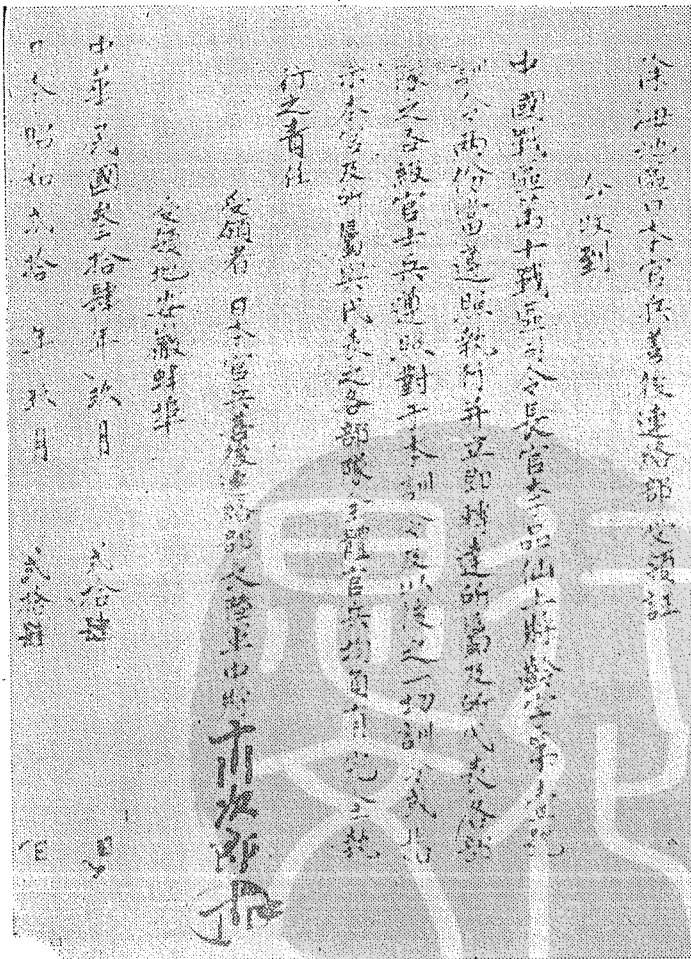 徐海地區日本官兵善後連絡部受領證
今收到
中國戰區第十戰區司令長官李品仙上將
訓令兩份當遵照執行并立即轉達所屬及所代表各部
隊之各級官士兵遵照對于本訓令及以後之一切訓令或指
示本官及所屬與代表之各部隊全體官兵均負有完全執
行之責任
受領者 日本官兵善後連絡部
受領地安徽蚌埠
中華民國叁拾肆年玖月 日
日本昭和貳拾年玖月 日